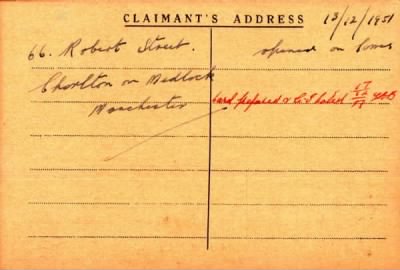 CLAIMANT'S ADDRESS
13/12/1951
66. Robert Street.
Chorlton on Medlock
Manchester
opened on
Card prepared &